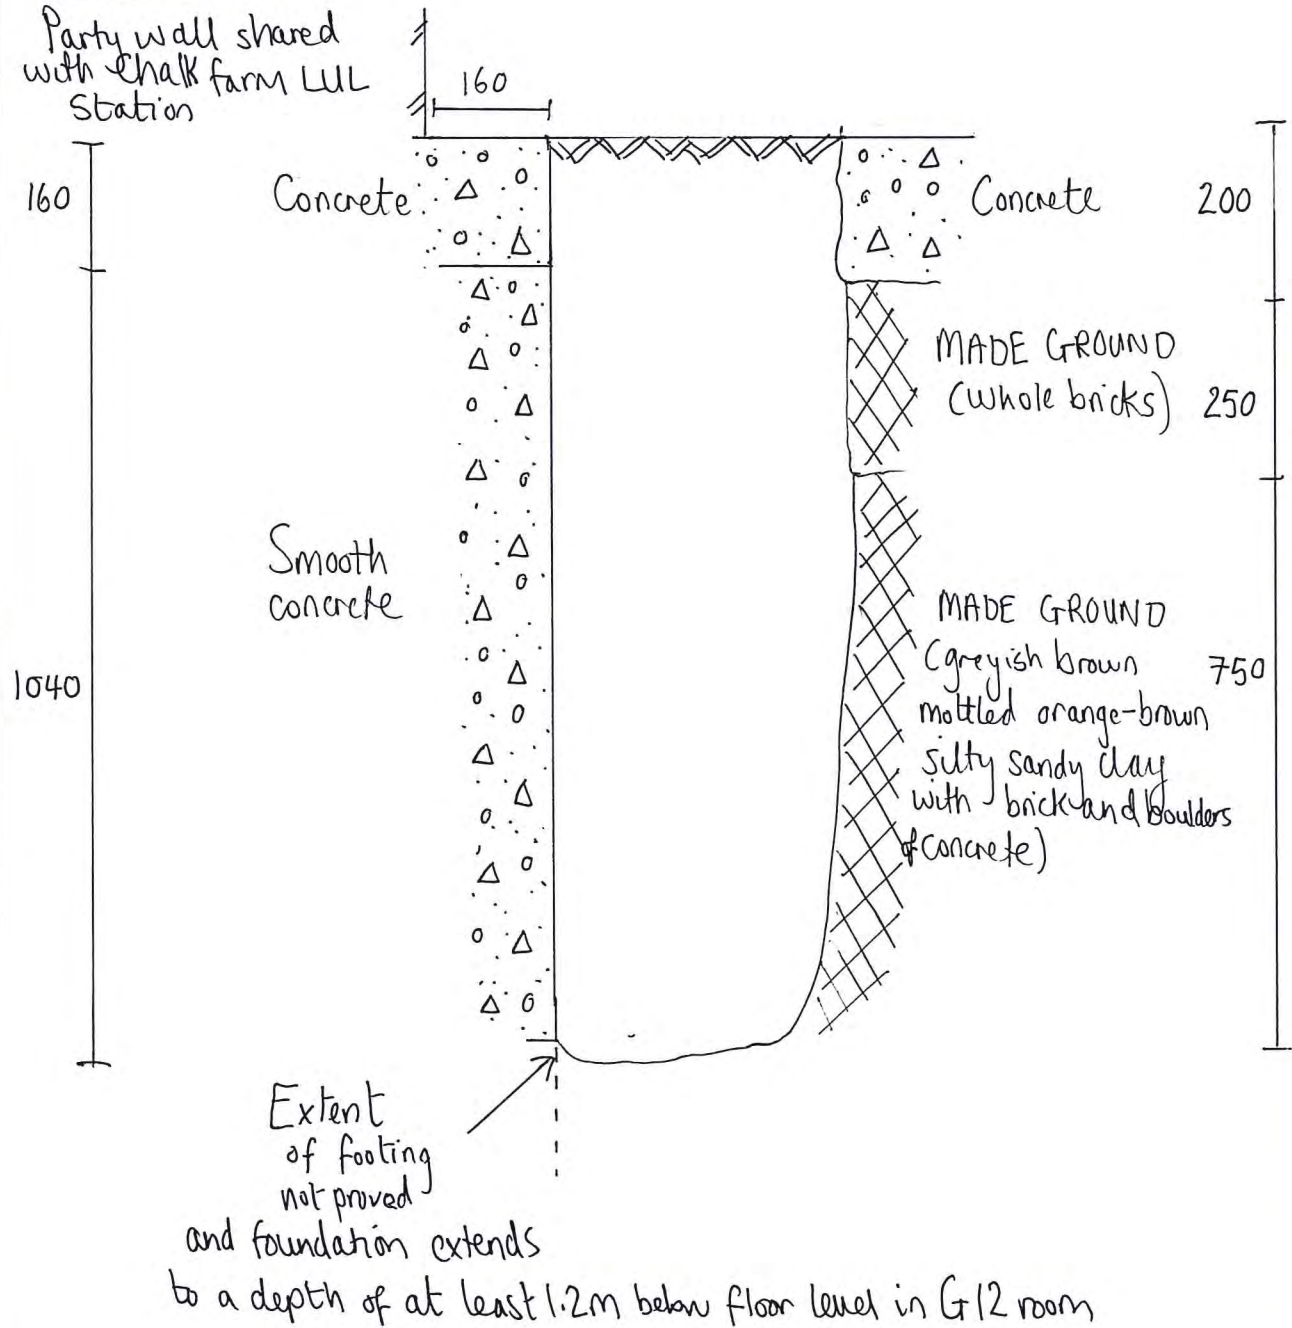 Party wall shared
with Chalk farm LUL
Station
160
160
Concrete
Concrete
200
MADE GROUND
(whole bricks)
250
Smooth
concrete
1040
MADE GROUND
(greyish brown
mottled orange-brown
silty sandy clay
with brick and boulders
of concrete)
750
Extent
of footing
not proved
and foundation extends
to a depth of at least 1.2m below floor level in G12 room